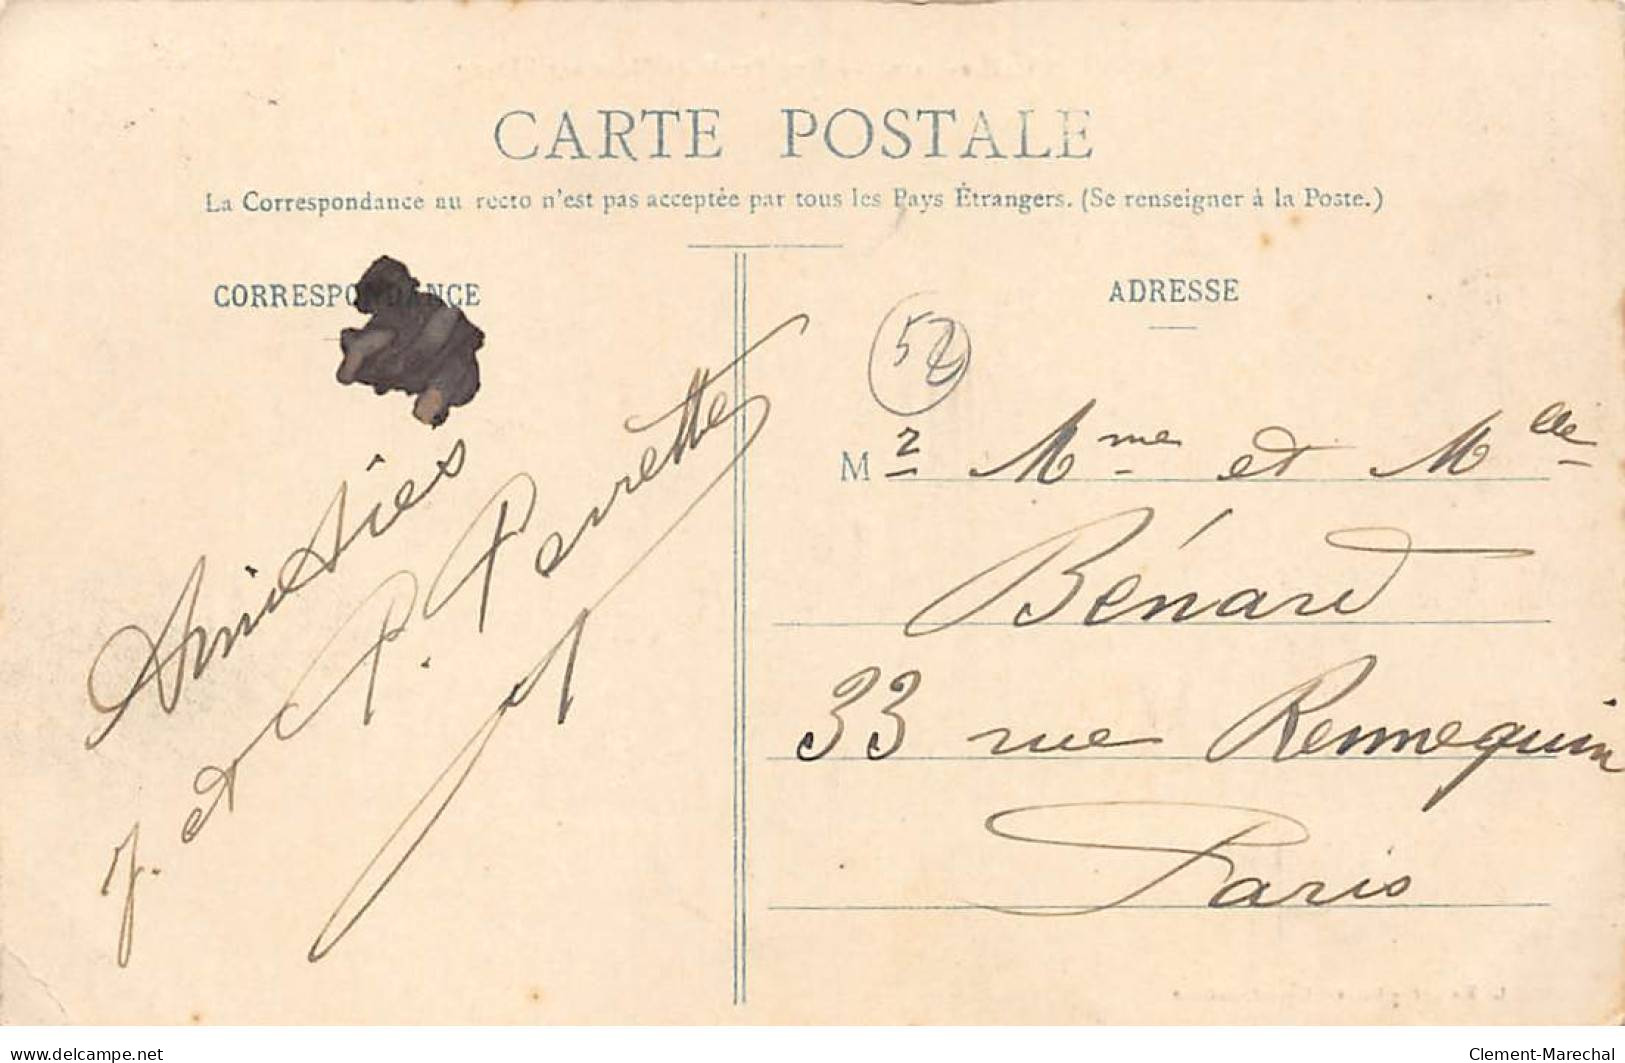 CARTE POSTALE
La Correspondance au recto n'est pas acceptée par tous les Pays Étrangers. (Se renseigner à la Poste.)
CORRESPONDANCE
Amitiés
J. et P. Perrette
ADRESSE
52
Mr Mme et Mlle
Bénard
33 rue Rennequin
Paris
www.delcampe.net
Clement-Marechal